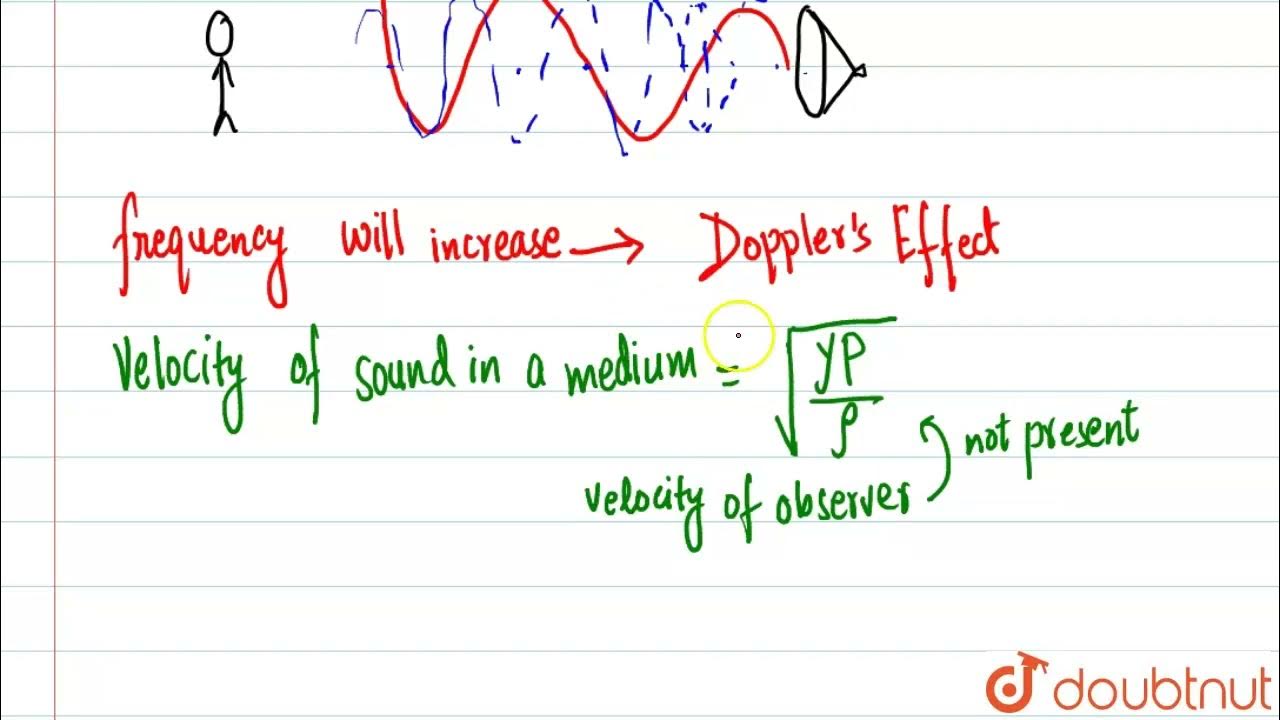 frequency will increase → Doppler's Effect
Velocity of sound in a medium = √(γP/ρ)
not present
velocity of observer
doubtnut